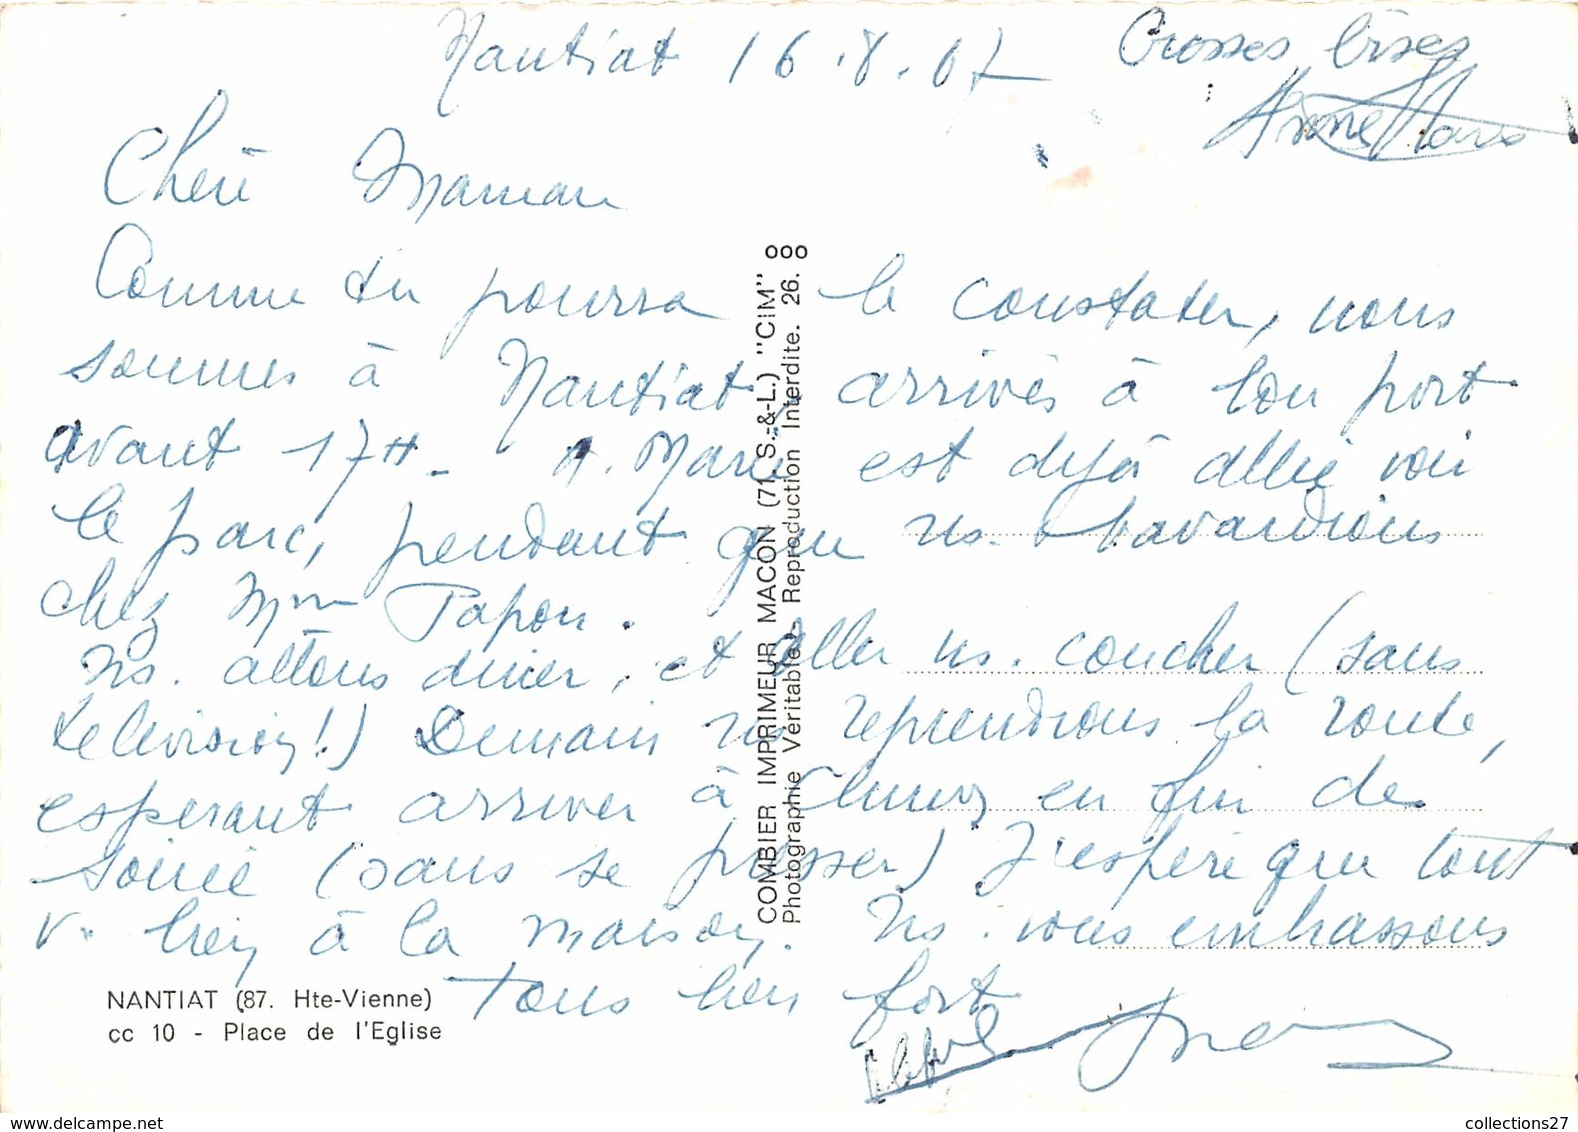 Nantiat 16.8.67
Grosses bises
Anne Marie
Chère Maman
Comme tu pourra le constater, nous
sommes à Nantiat, arrivés à bon port
avant 17H. A. Marie est déjà allée voir
le parc, pendant que ns. bavardions
chez Mme Papon.
Ns. allons diner, et aller ns. coucher (sans
television!) Demain ns reprendrons la route,
esperant arriver à en fin de
soirée (sans se presser) J'espère que tout
va bien à la maison. Ns. vous embrassons
tous bien fort
NANTIAT (87. Hte-Vienne)
cc 10 - Place de l'Eglise
COMBIER IMPRIMEUR MACON (71 S.-&-L.) "CIM"
Photographie Véritable - Reproduction Interdite. 26.
collections27